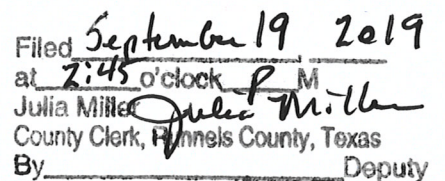 Filed September 19, 2019
at 2:45 o'clock P M
Julia Miller Julia Miller
County Clerk, Runnels County, Texas
By Deputy